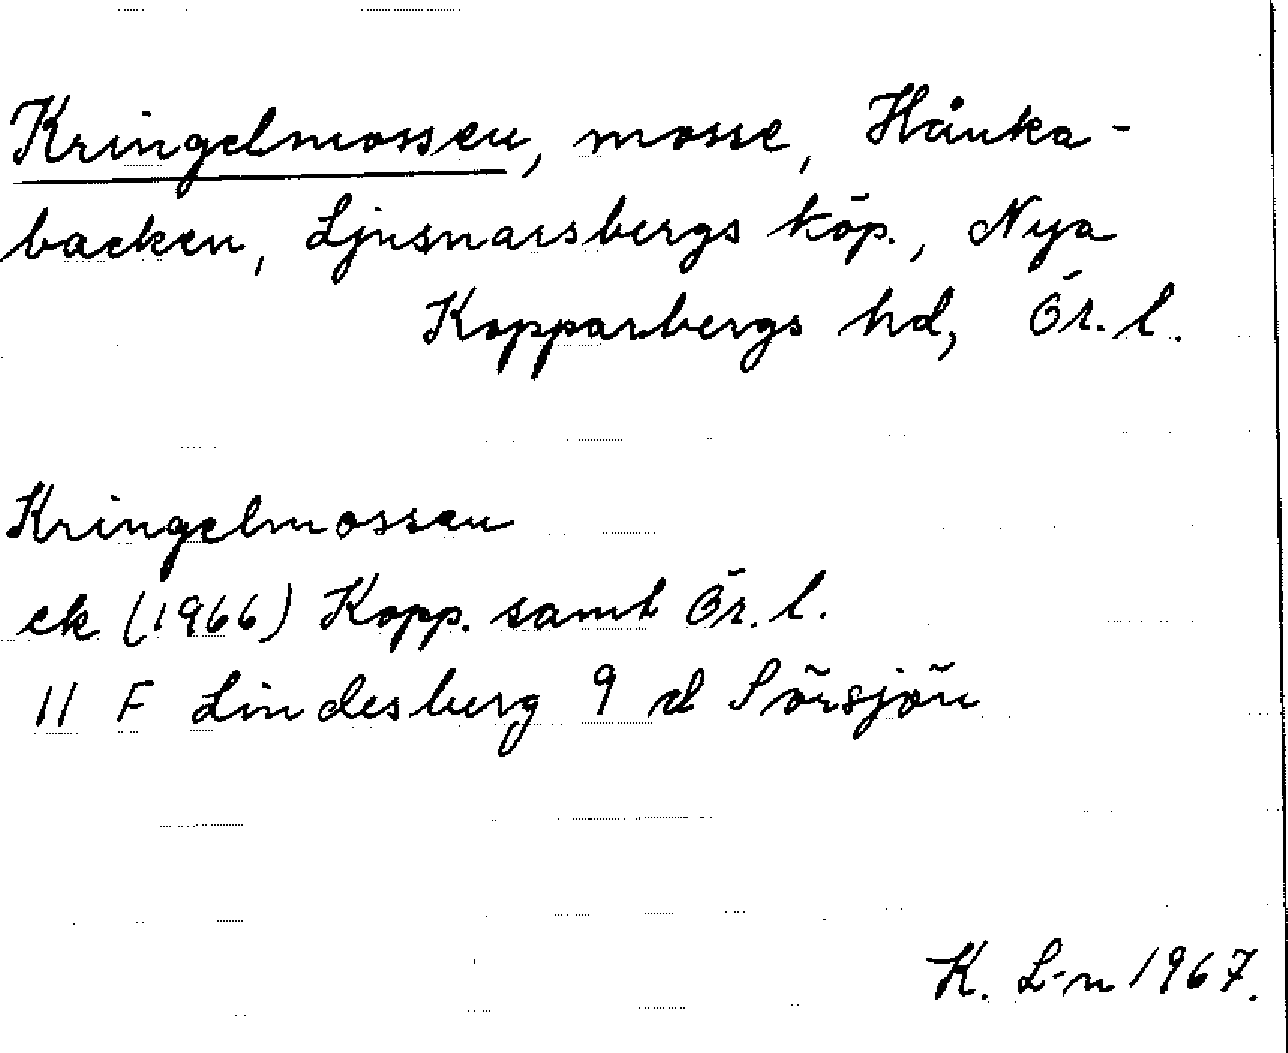 Kringelmossen, mosse, Hånka-
backen, Ljusnarsbergs köp., Nya
Kopparbergs hd, Ör. l.
Kringelmossen
ek (1966) Kopp. samt Ör. l.
11 F Lindesberg 9 d Sörsjön
K. L-n 1967.